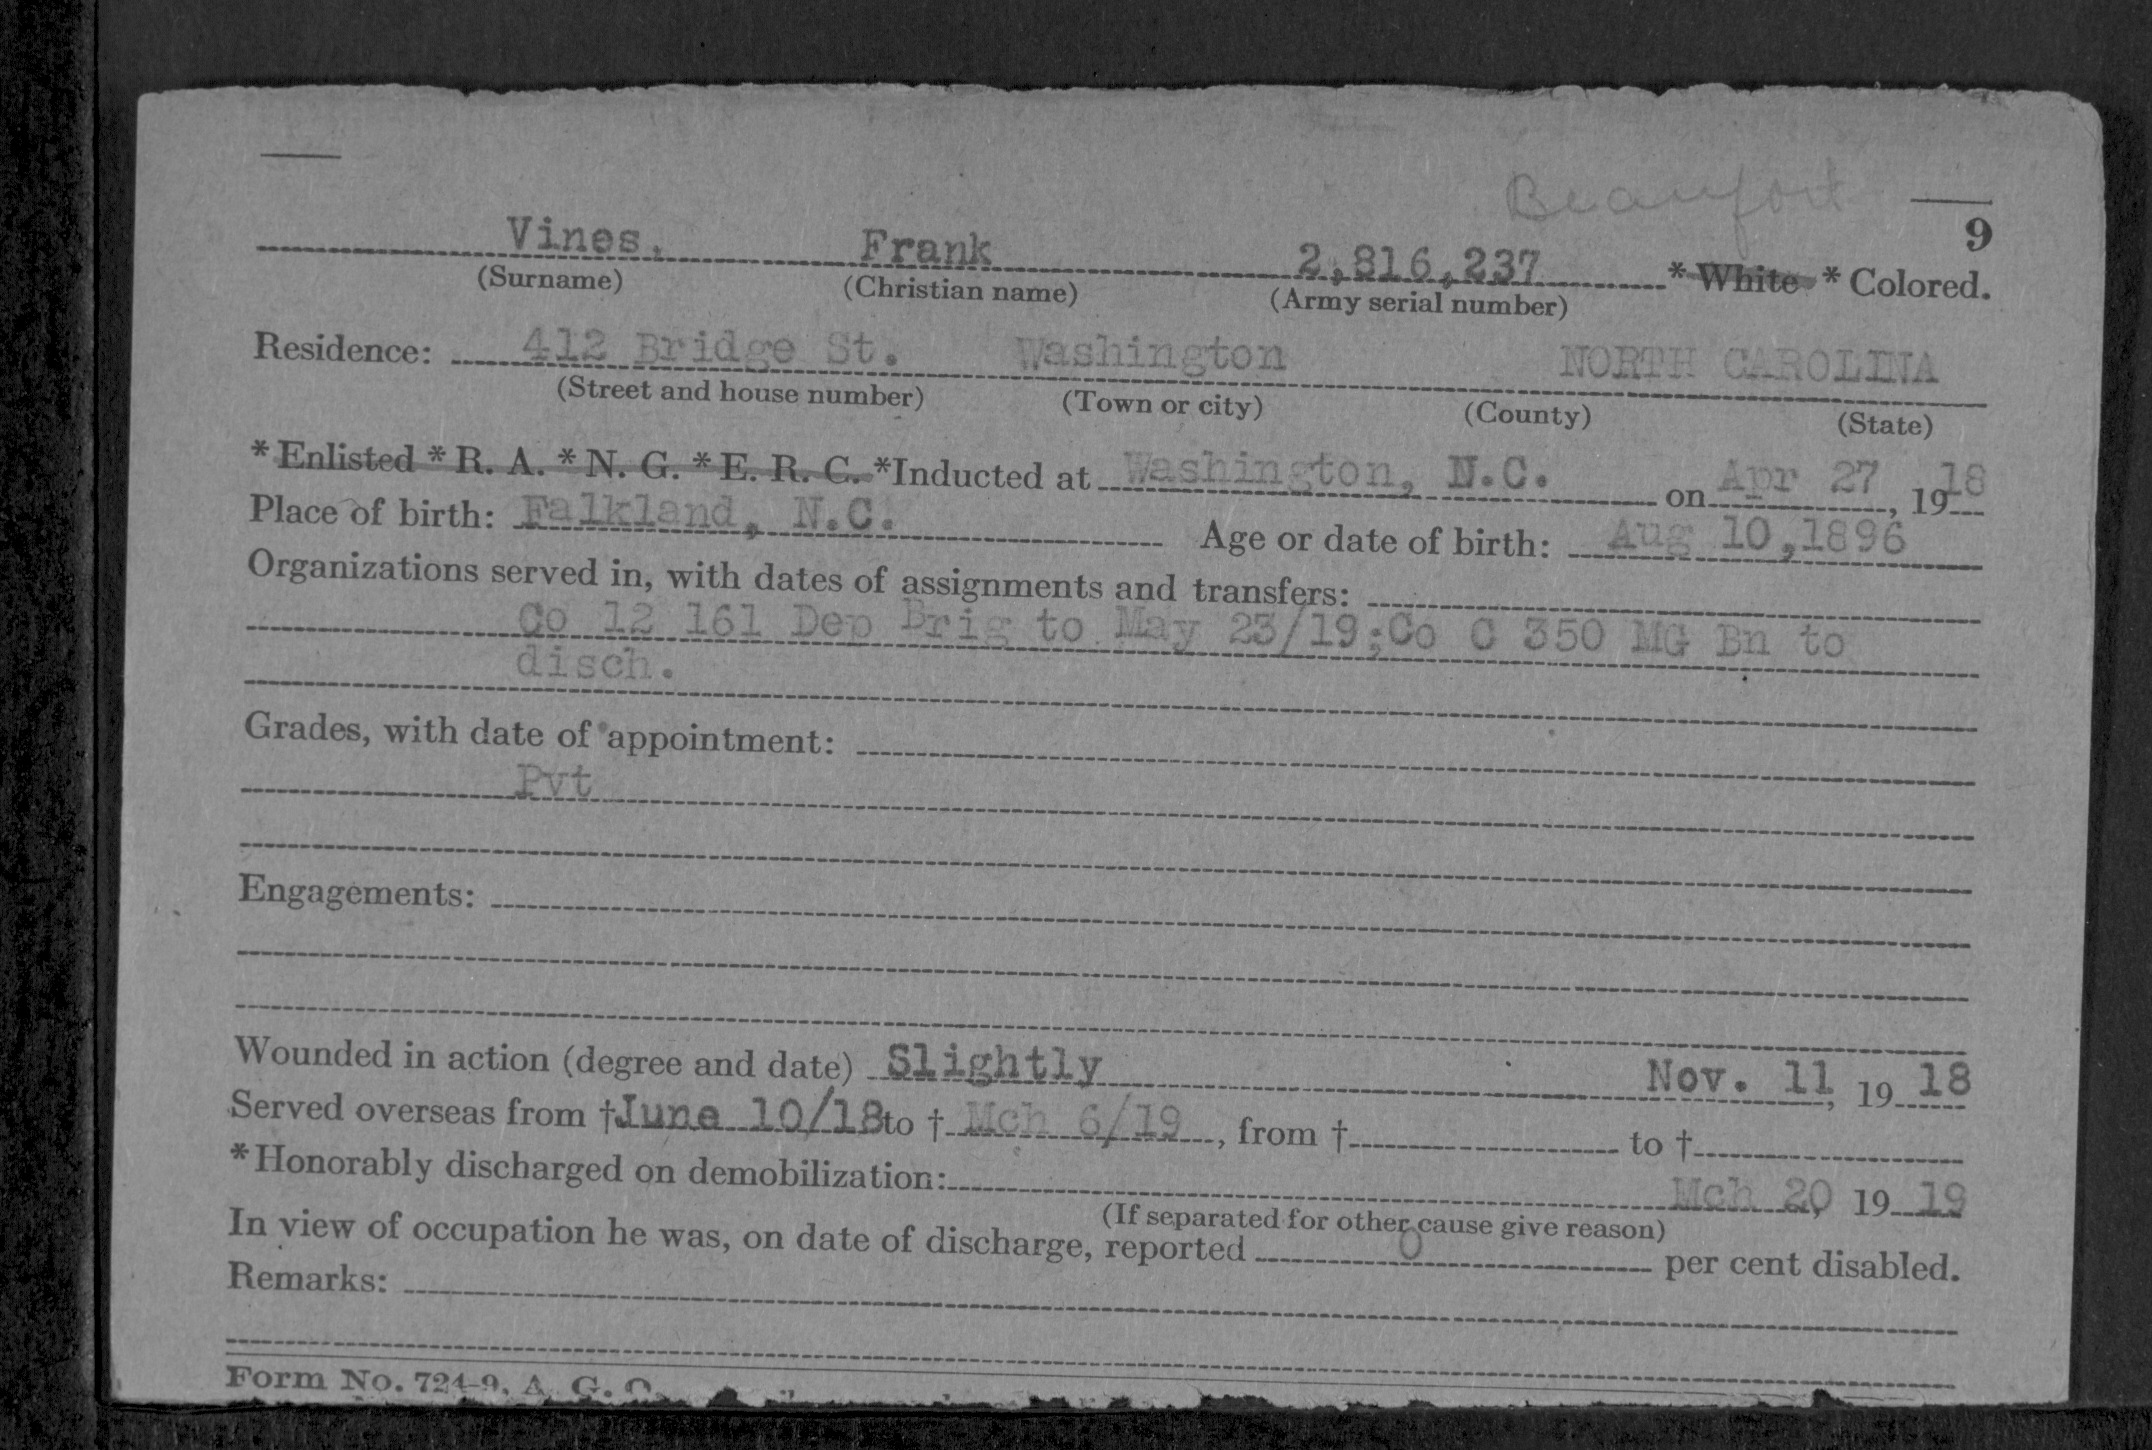 Beaufort
9
Vines, Frank 2,816,237 * White * Colored.
(Surname) (Christian name) (Army serial number)
Residence: 412 Bridge St. Washington NORTH CAROLINA
(Street and house number) (Town or city) (County) (State)
* Enlisted * R. A. * N. G. * E. R. C. *Inducted at Washington, N.C. on Apr 27, 1918
Place of birth: Falkland, N.C. Age or date of birth: Aug 10,1896
Organizations served in, with dates of assignments and transfers:
Co 12 161 Dep Brig to May 23/19;Co C 350 MG Bn to
disch.
Grades, with date of appointment:
Pvt
Engagements:
Wounded in action (degree and date) Slightly Nov. 11, 19 18
Served overseas from †June 10/18 to † Mch 6/19, from † to †
*Honorably discharged on demobilization: Mch 20, 19 19
(If separated for other cause give reason)
In view of occupation he was, on date of discharge, reported 0 per cent disabled.
Remarks:
Form No. 724-9, A. G. O.